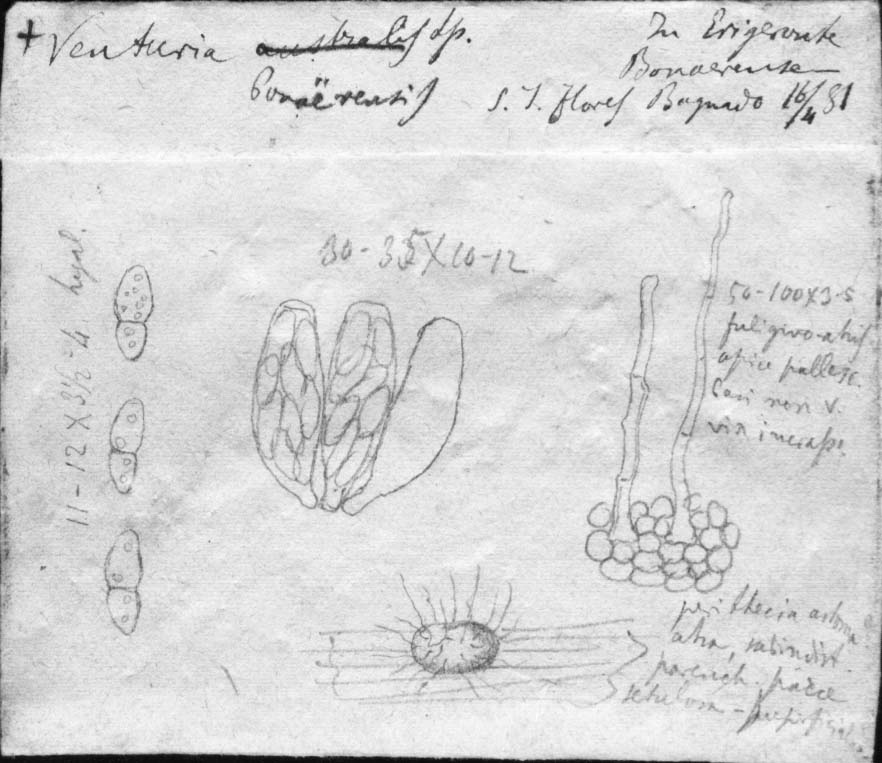 + Venturia australis Sp.
bonaërensis
In Erigeronte
Bonaerense
S. J. Flores Bagnado 16/4 81
30-35X10-12
11-12 X 3½-4 hyal.
50-100X3-5
fuligineo-atris
apice pallesc.
basi non v.
vix incrass.
perithecia astoma
atra, subindist.
parench. parce
setulosa - superficial